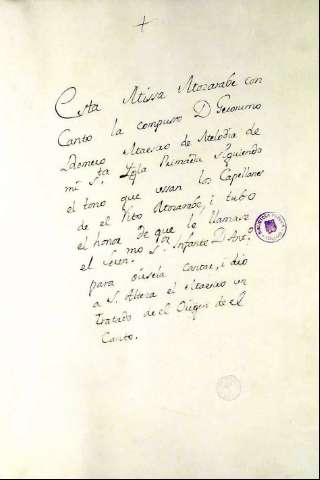 +
Esta Missa Mozarabe con
Canto la compuso D. Geronimo
Romero Maestro de Melodia de
mi S.ta Iglã Primada siguiendo
el tono que vssan los Capellanes
de el Rito Mozarabe, i tubo
el honor de que le llamase
el Seren.mo S.or Infante D.
para oirsela cantar, i dio
a S. Alteza el Maestro un
tratado de el Origen de el
Canto.